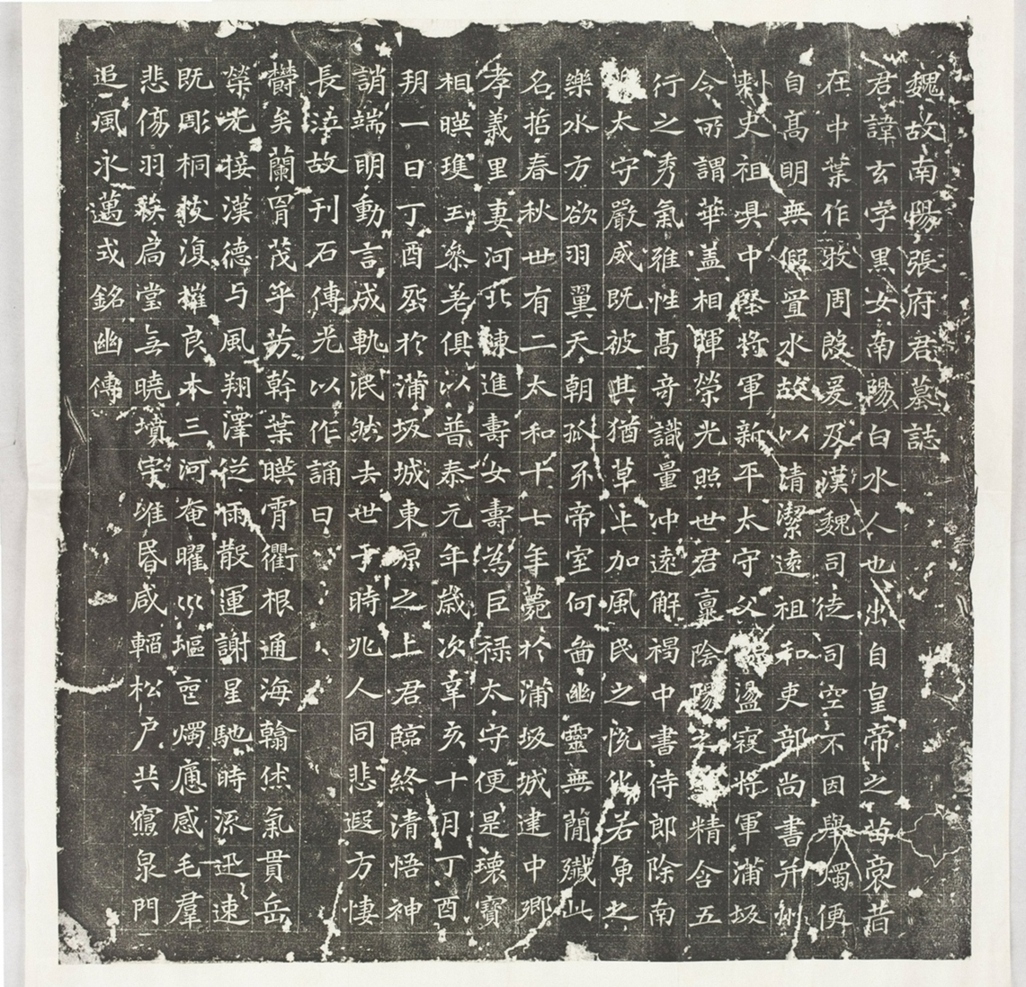 魏故南陽張府君墓誌
君諱玄字黑女南陽白水人也出自皇帝之苗裔昔
在中葉作牧周殷爰及漢魏司徒司空不因舉燭便
自高明無假置水故以清潔遠祖和吏部尚書并州
刾史祖具中堅將軍新平太守父盪寇將軍蒲坂
令所謂華盖相暉榮光照世君稟陰陽之精含五
行之秀氣雅性高奇識量冲遠解褐中書侍郎除南
太守嚴威既被其猶草上加風民之悅化若魚之
樂水方欲羽翼天朝抓牙帝室何啚幽靈無簡殲此
名哲春秋卅有二太和十七年薨於蒲坂城建中鄉
孝義里妻河北陳進壽女壽為巨祿太守便是瓌寶
相暎瓊玉參差俱以普泰元年歲次辛亥十月丁酉
朔一日丁酉塟於蒲坂城東原之上君臨終清悟神
誚端明動言成軌泯然去世于時兆人同悲遐方悽
長泣故刊石傳光以作誦曰
欝矣蘭冑茂乎芳幹葉暎霄衢根通海翰氣貫岳
榮光接漢德与風翔澤從雨散運謝星馳時流迅速
既彫桐枝復摧良木三河奄曜巛堀霓燭痛感毛羣
悲傷羽族扃堂無曉墳宇唯昏咸輼松戶共寢泉門
追風永邁式銘幽傳